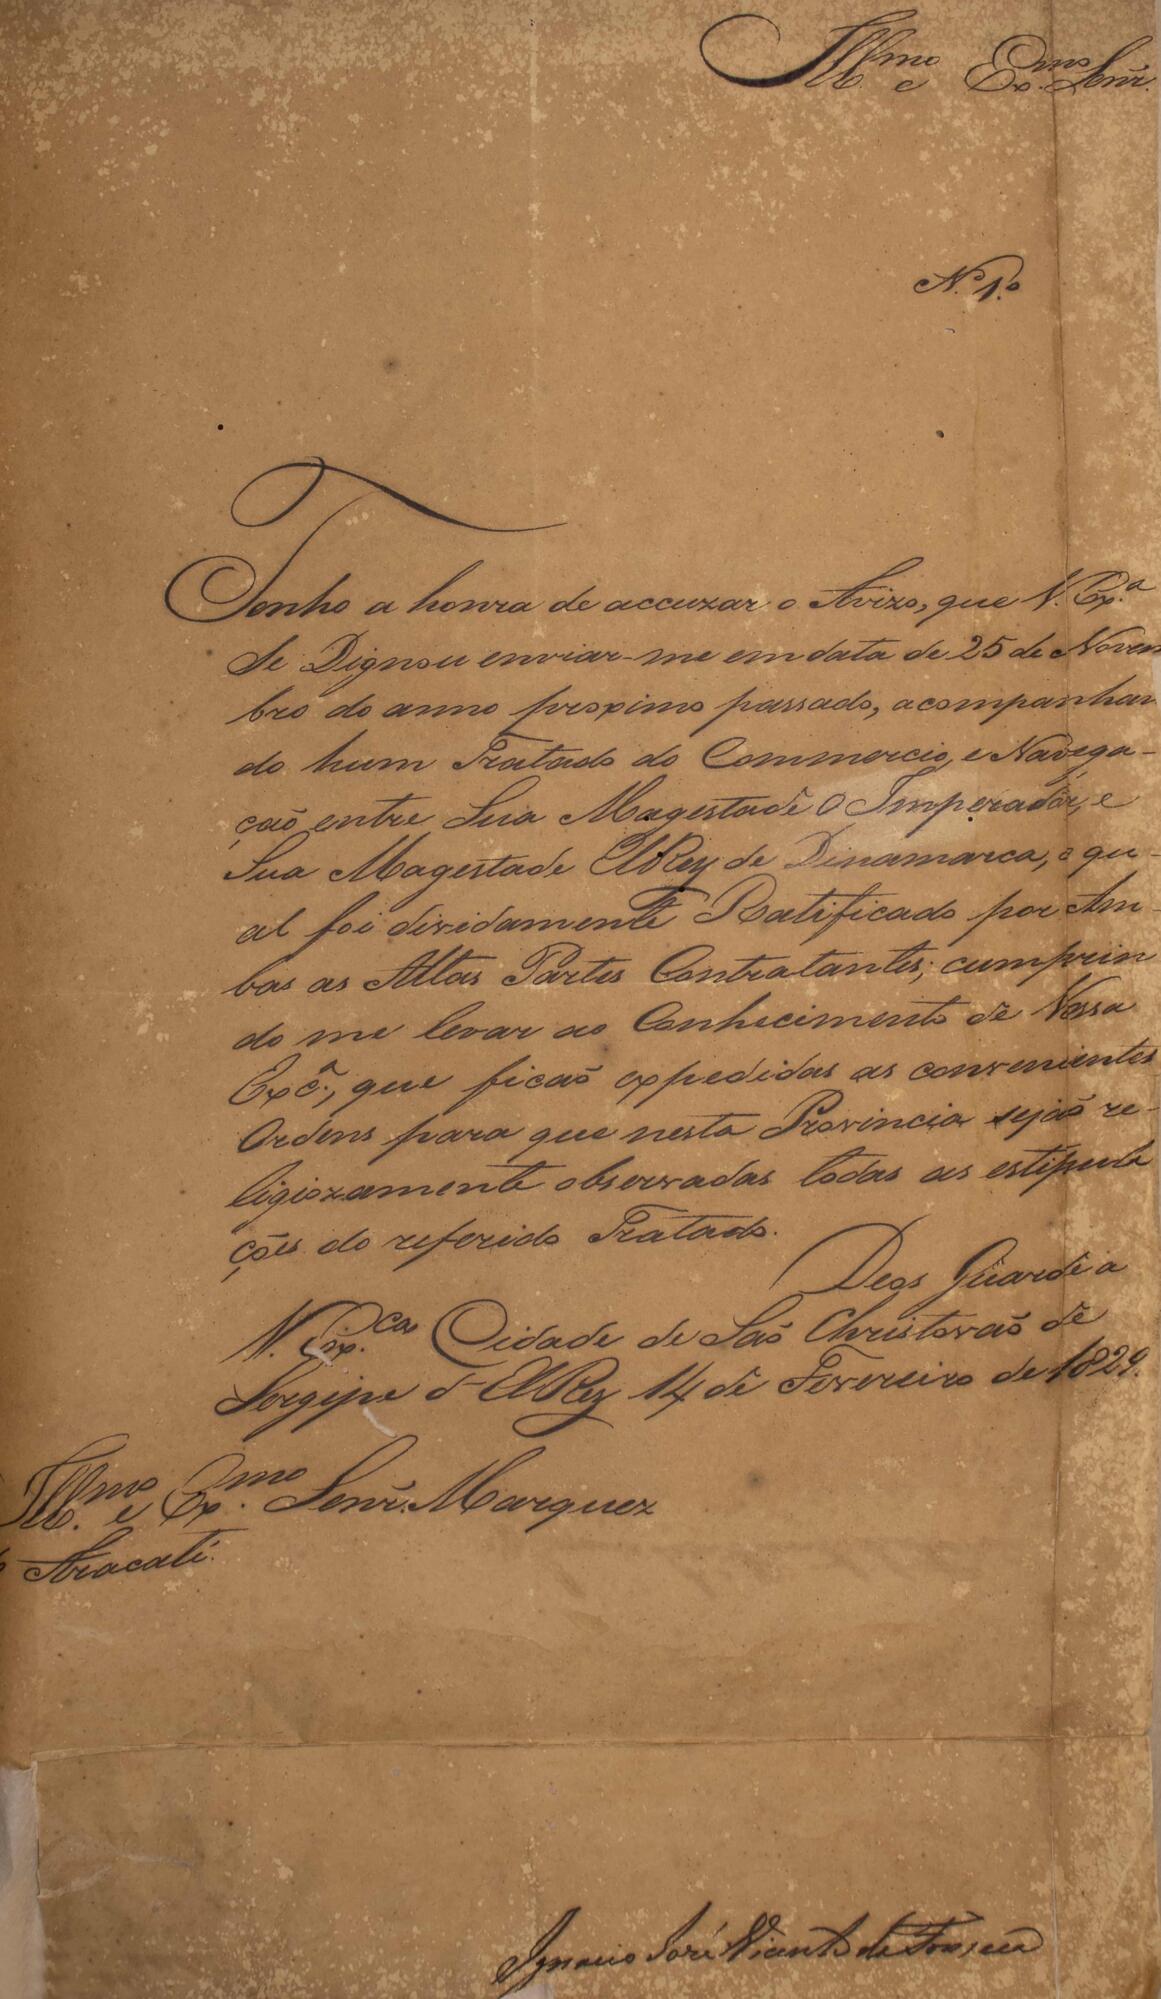 Ill.mo e Ex.mo Senr.
N.º 1.º
Tenho a honra de accuzar o Avizo, que V. Ex.a
Se Dignou enviar-me em data de 25 de Novem
bro do anno proximo passado, acompanhan
do hum Tratado do Commercio, e Navega-
ção entre Sua Magestade O Imperador, e
Sua Magestade ElRey de Dinamarca, o qu-
al foi dividamente Ratificado por Am-
bas as Altas Partes Contratantes; cumprin
do me levar ao Conhecimento de Vossa
Exc.ª, que ficaõ expedidas as convenientes
Ordens para que nesta Provincia sejaõ re-
ligiozamente observadas todas as estipula
ções do referido Tratado.
Deos Guarde a
V. Ex.ca Cidade de Saõ Christovaõ de
Sergipe d'ElRey 14 de Fevereiro de 1829.
Ill.mo e Ex.mo Senr. Marquez
Aracati.
Ignacio José Vicente da Fonseca